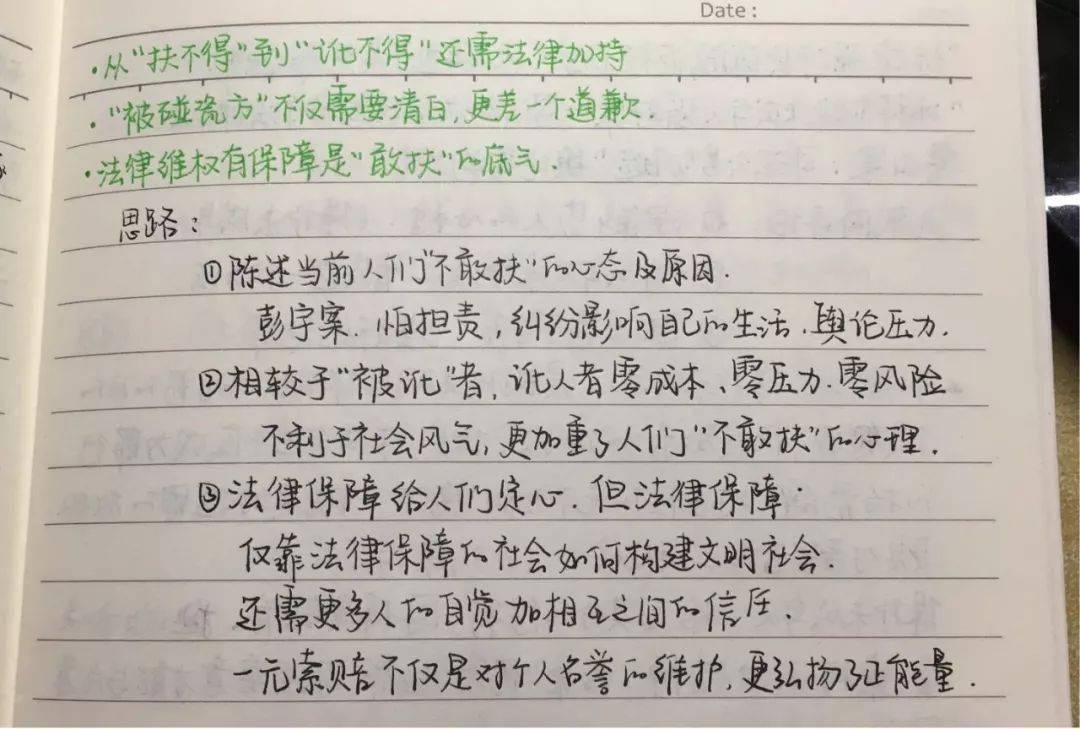 Date:
·从“扶不得”到“讹不得”还需法律加持
·“被碰瓷方”不仅需要清白,更差一个道歉.
·法律维权有保障是“敢扶”的底气.
思路:
①陈述当前人们“不敢扶”的心态及原因.
彭宇案.怕担责,纠纷影响自己的生活、舆论压力.
②相较于“被讹”者,讹人者零成本、零压力.零风险
不利于社会风气,更加重了人们“不敢扶”的心理.
③法律保障给人们定心.但法律保障:
仅靠法律保障的社会如何构建文明社会.
还需更多人的自觉加相互之间的信任.
一元索赔不仅是对个人名誉的维护,更弘扬了正能量.